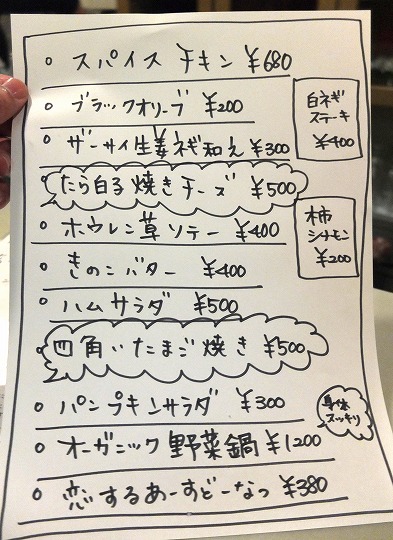 スパイスチキン ¥680
ブラックオリーブ ¥200
ザーサイ生姜ネギ和え ¥300
たら白子焼きチーズ ¥500
ホウレン草ソテー ¥400
きのこバター ¥400
ハムサラダ ¥500
四角いたまご焼き ¥500
パンプキンサラダ ¥300
オーガニック野菜鍋 ¥1200
恋するあーすどーなつ ¥380
白ネギ
ステーキ
¥400
柿
シナモン
¥200
身体
スッキリ